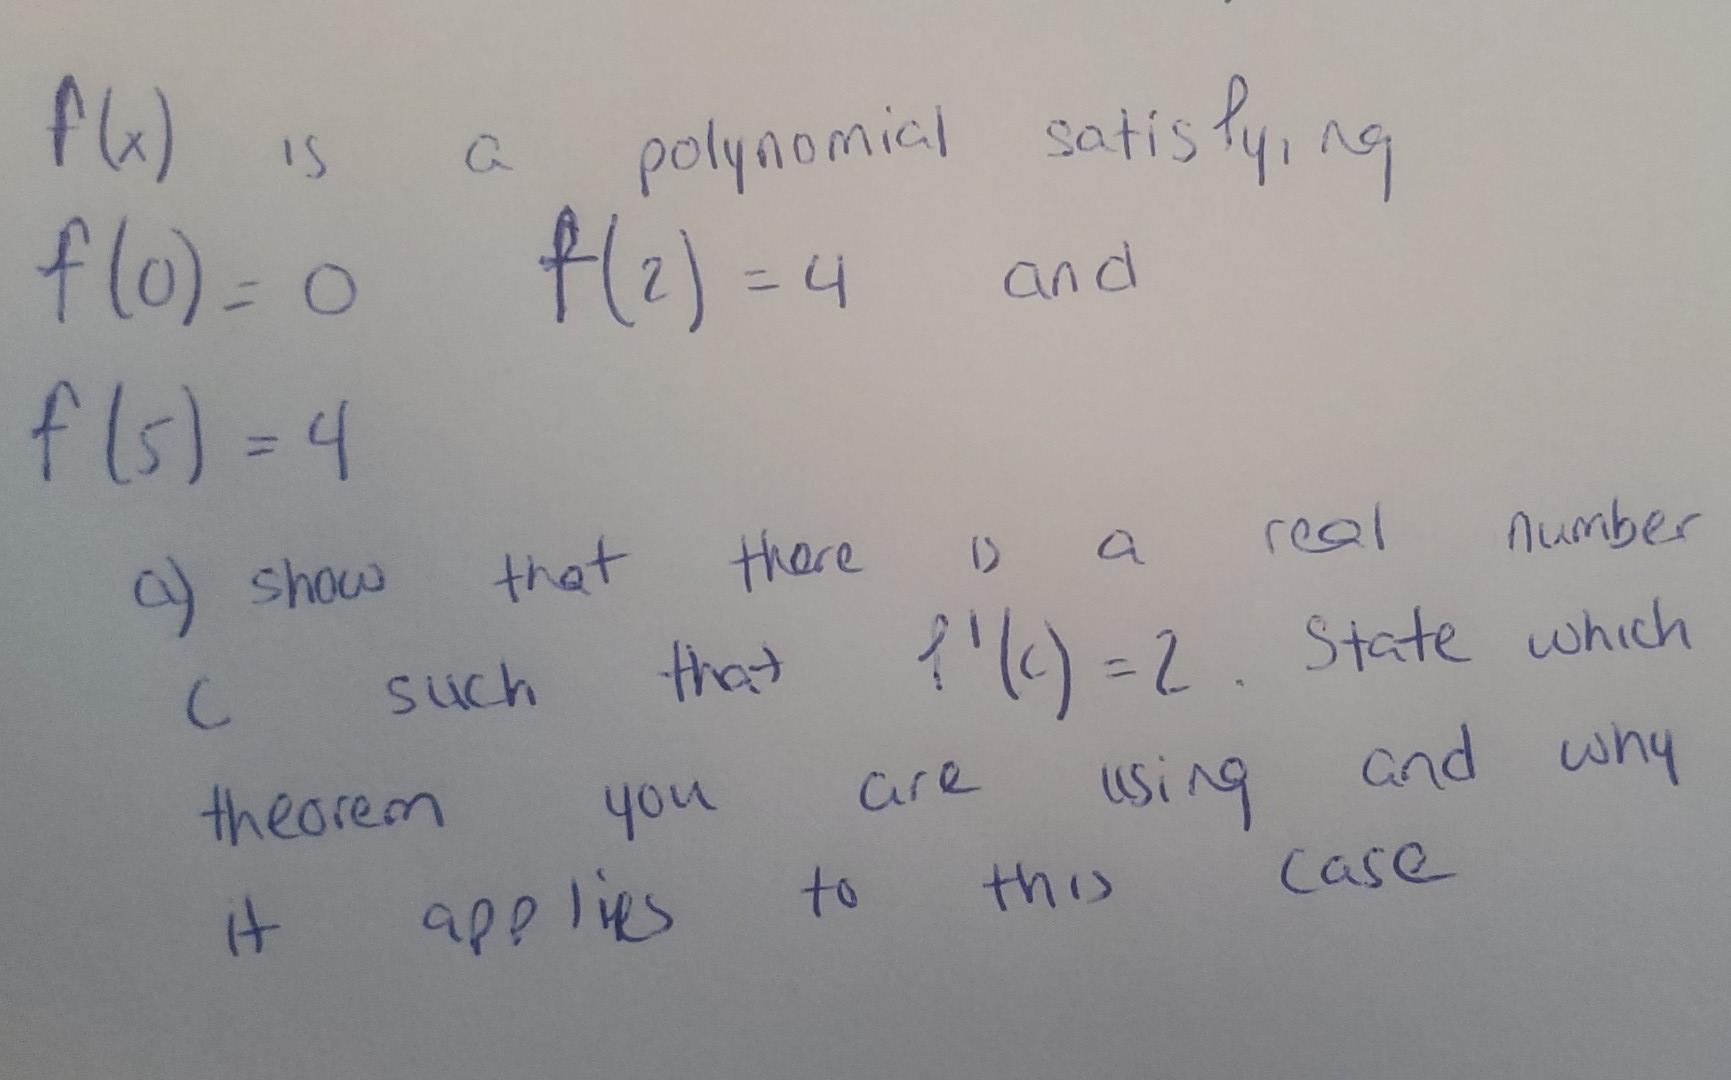 f(x) is a polynomial satisfying
f(0)=0 f(2)=4 and
f(5)=4
a) show that there is a real number
c such that f'(c)=2. State which
theorem you are using and why
it applies to this case